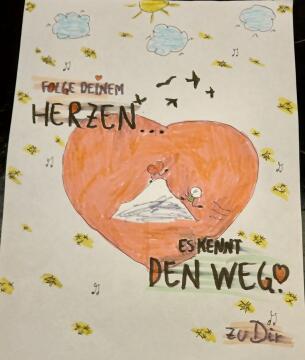 FOLGE DEINEM
HERZEN...
ES KENNT
DEN WEG!
zu Dir